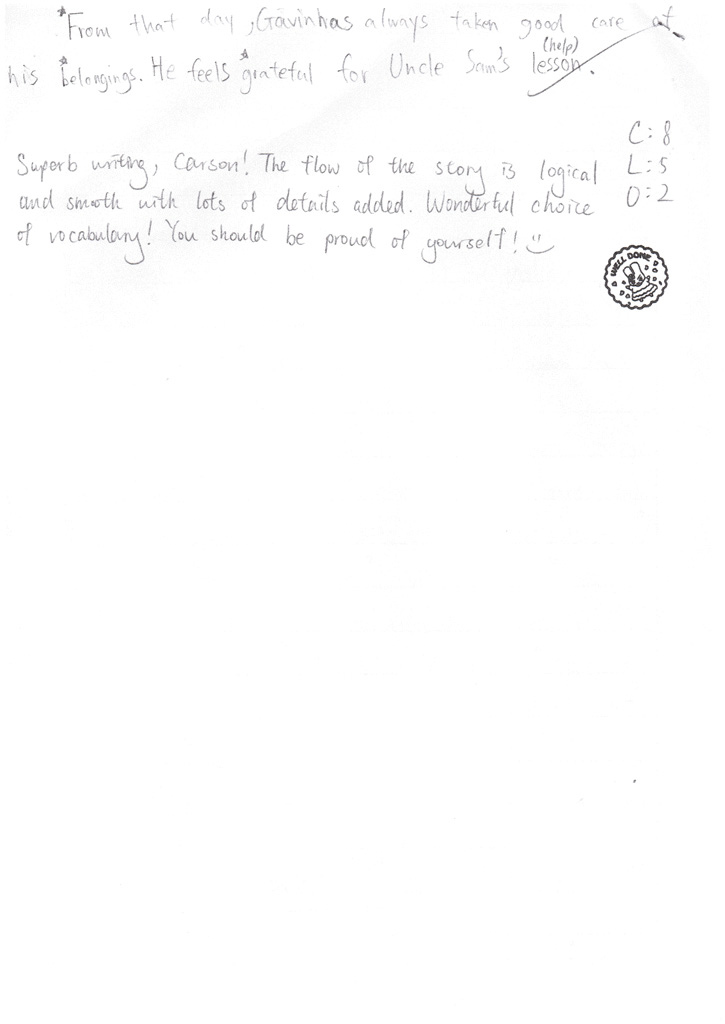 *From that day, Gavin has always taken good care of
his *belongings. He feels *grateful for Uncle Sam's lesson.
(help)
C: 8
Superb writing, Carson! The flow of the story is logical
L: 5
and smooth with lots of details added. Wonderful choice
O: 2
of vocabulary! You should be proud of yourself!
WELL DONE